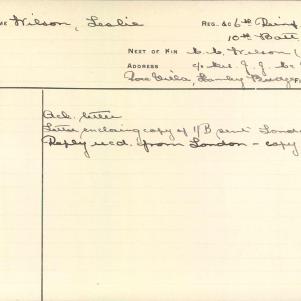 ME Wilson, Leslie REG. &C 6th Reinf
10th Batt
NEXT OF KIN C. C. Wilson (
ADDRESS c/o Mrs. J. J. Mc
Rose Villa, Stanley Bridge
Ack. letter
Letter enclosing copy of 1/B sent London
Reply recd. from London - copy